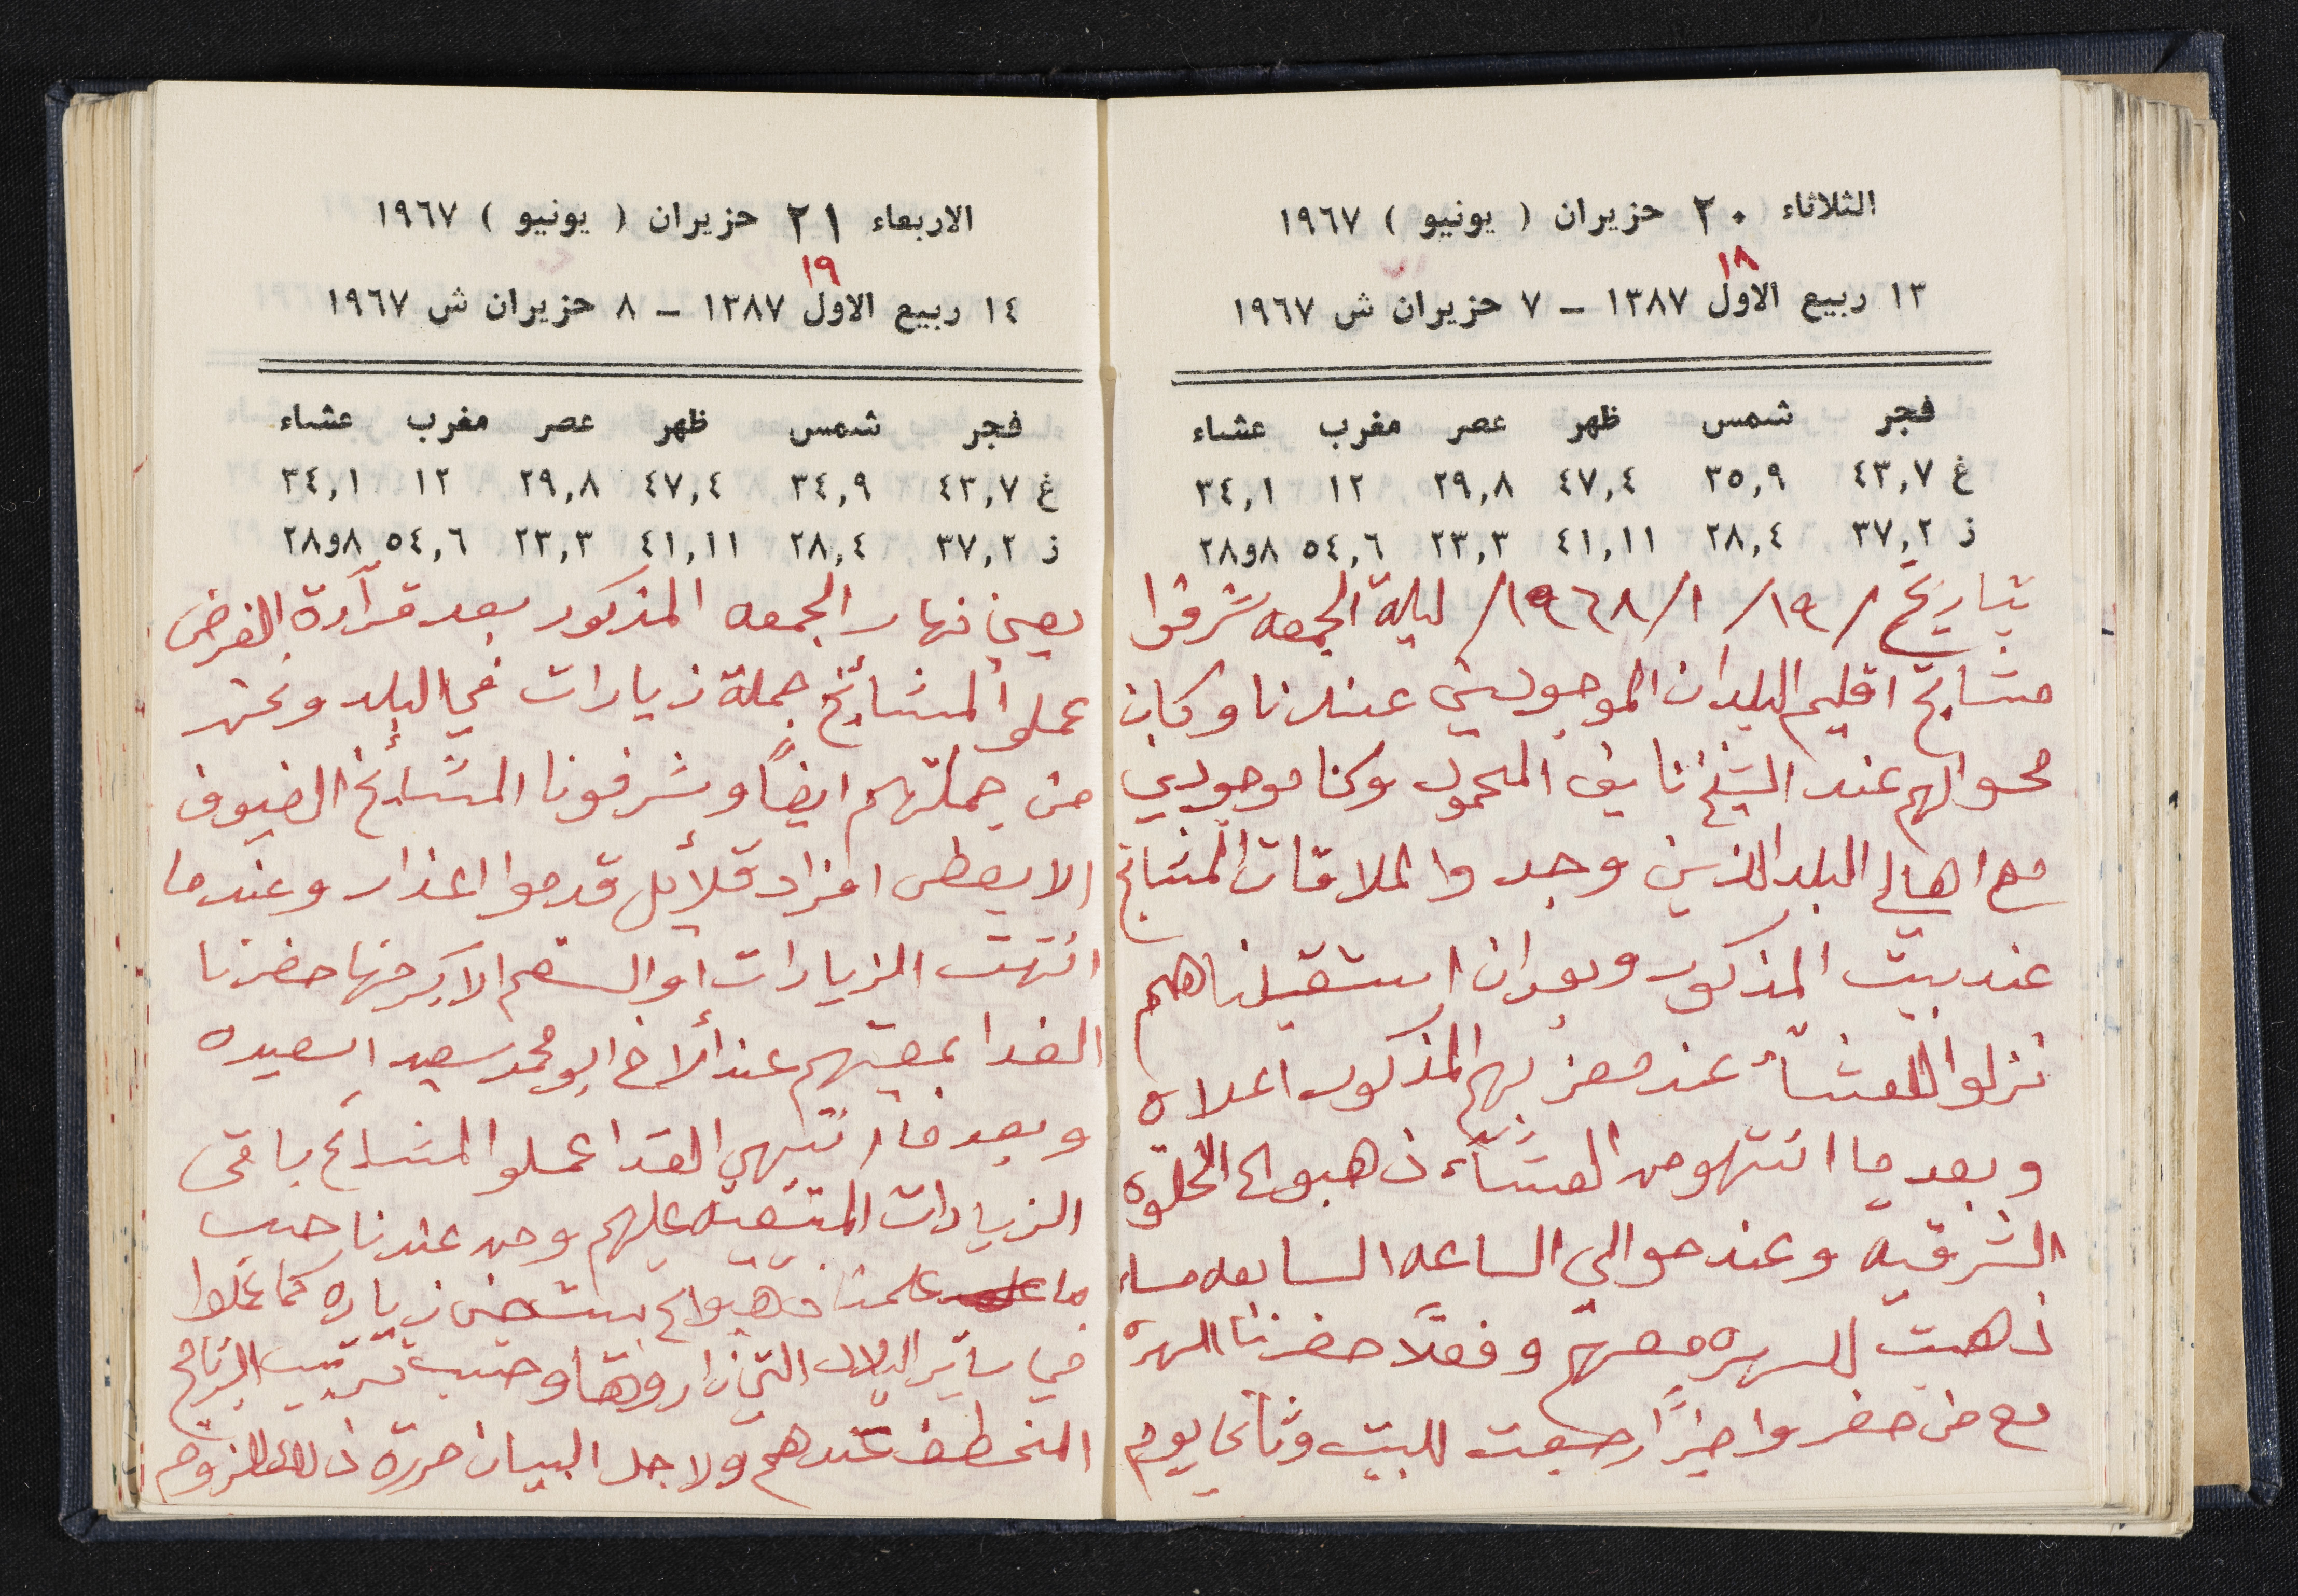 الثلاثاء ٢٠ حزيران ( يونيو ) ١٩٦٧
١٨
١٣ ربيع الاول ١٣٨٧ - ٧ حزيران ش ١٩٦٧
فجر شمس ظهر عصر مغرب عشاء
غ ٤٣,٧ ٣٥,٩ ٤٧,٤ ٢٩,٨ ١٢ ٣٤,١
ز ٣٧,٢ ٢٨,٤ ٤١,١١ ٢٣,٣ ٥٤,٦ ٨و٢٨
بتاريخ /١٩/ ١/ ١٩٦٨/ ليلة الجمعه شرفوا
مشائخ اقليم البلدان الموجودين عندنا وكان
محوالهم عند الشيخ نايف المحمود وكنا موجودين
مع اهالي البلد الذين وجدوا لملاقات المشائخ
عند بيت المذكور وبعد ان استقبلناهم
نزلوا للعشاء عند معزبهم المذكور اعلاه
وبعد ما انتهو من العشاء ذهبوا الى الخلوه
الشرقيه وعند حوالي الساعه السابعه مساء
ذهبت للسهره معهم وفعلاً حضرنا السهره
مع من حضر واخيراً رجعت للبيت وثاني يوم
الاربعاء ٢١ حزيران ( يونيو ) ١٩٦٧
١٩
١٤ ربيع الاول ١٣٨٧ - ٨ حزيران ش ١٩٦٧
فجر شمس ظهر عصر مغرب عشاء
غ ٤٣,٧ ٣٤,٩ ٤٧,٤ ٢٩,٨ ١٢ ٣٤,١
ز ٣٧,٢ ٢٨,٤ ٤١,١١ ٢٣,٣ ٥٤,٦ ٨و٢٨
يعني نهار الجمعه المذكور بعد قرآءة الفرض
عملوا المشائخ جملة زيارات في البلد ونحن
من جملتهم ايضاً وشرفونا المشائخ الضيوف
الا بعض افراد قلائل قدموا اعذار وعندما
انتهت الزيارات او القسم الاكبر منها حضرنا
الغدا بمعيتهم عند الأخ ابو محمد سعيد اسعيده
وبعد ما انتهى الغدا عملوا المشائخ باقي
الزيارات المتبقيه عليهم ومن عندنا حسب
ما علمنا ذهبوا الى زياره كما عملوا
في سائر البلاد التي زاروها وحسب ترتيب البرنامج
عندهم ولاجل البيان حررة ذلك للزوم